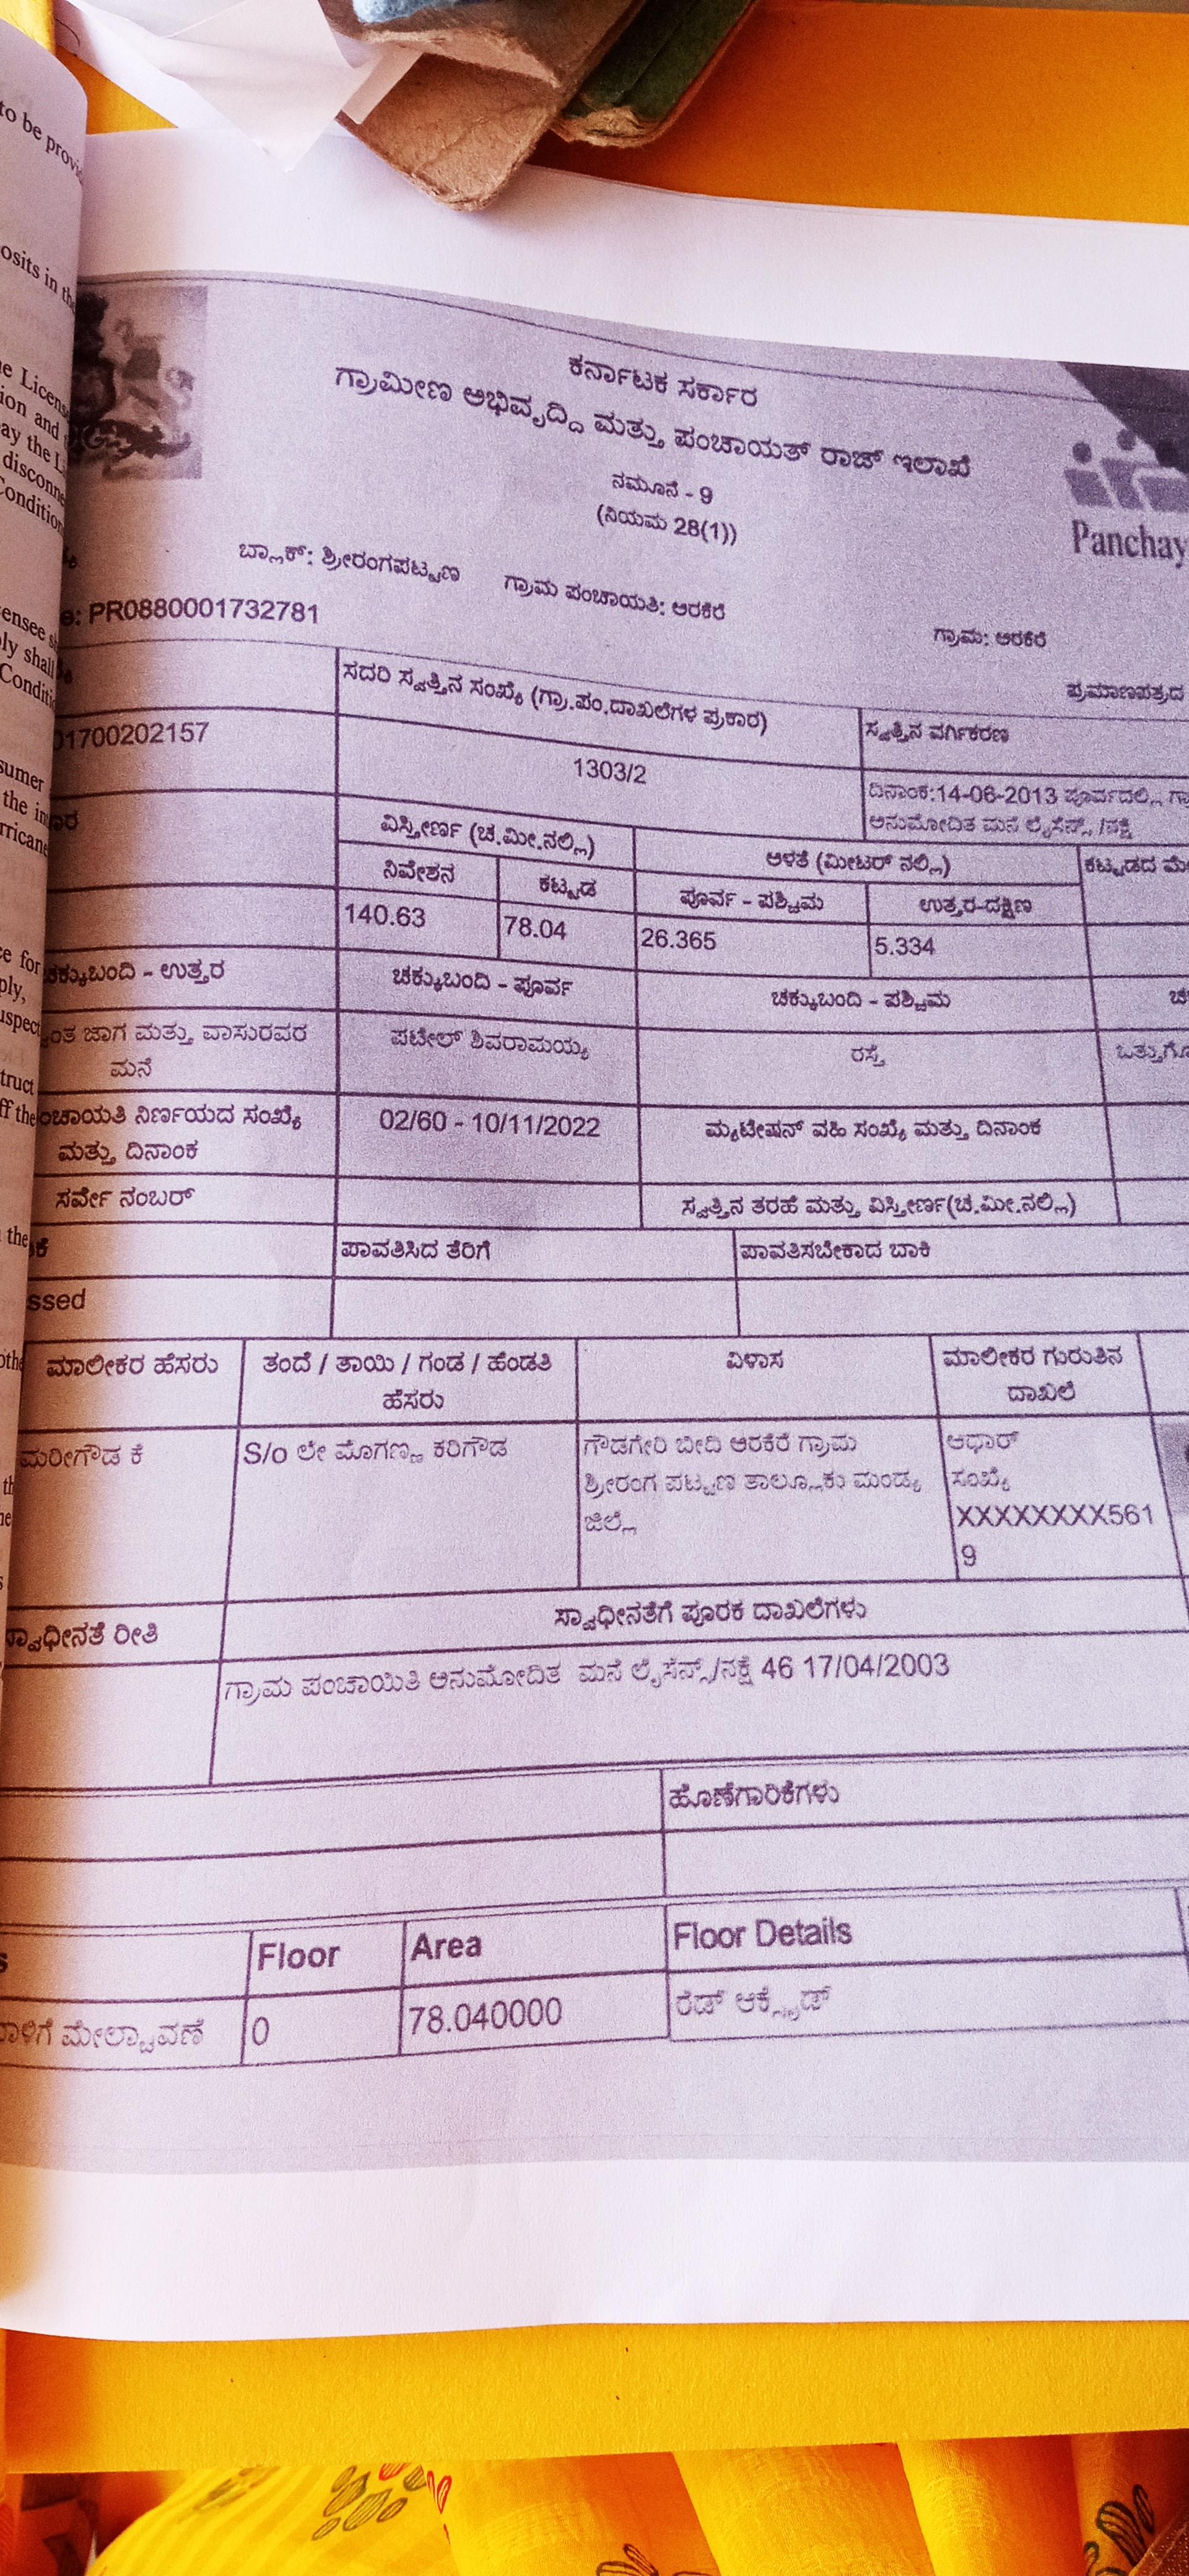 to be provi
osits in the
ne License
ion and
ay the Li
disconne
Condition
ensee s
ply shall
Conditi
sumer
the in
rricane
ce for
ply,
uspect
truct
ff the
the
othe
th
ಕರ್ನಾಟಕ ಸರ್ಕಾರ
ಗ್ರಾಮೀಣ ಅಭಿವೃದ್ದಿ ಮತ್ತು ಪಂಚಾಯತ್ ರಾಜ್ ಇಲಾಖೆ
ನಮೂನೆ - 9
(ನಿಯಮ 28(1))
Panchay
ಬ್ಲಾಕ್: ಶ್ರೀರಂಗಪಟ್ಟಣ ಗ್ರಾಮ ಪಂಚಾಯತಿ: ಅರಕೆರೆ ಗ್ರಾಮ: ಅರಕೆರೆ
: PR0880001732781
ಪ್ರಮಾಣಪತ್ರದ
ಸದರಿ ಸ್ವತ್ತಿನ ಸಂಖ್ಯೆ (ಗ್ರಾ.ಪಂ.ದಾಖಲೆಗಳ ಪ್ರಕಾರ) ಸ್ವತ್ತಿನ ವರ್ಗಿಕರಣ
01700202157 1303/2 ದಿನಾಂಕ:14-06-2013 ಪೂರ್ವದಲ್ಲಿ ಗ್ರಾ
ಅನುಮೋದಿತ ಮನೆ ಲೈಸೆನ್ಸ್ /ನಕ್ಷೆ
ವಿಸ್ತೀರ್ಣ (ಚ.ಮೀ.ನಲ್ಲಿ) ಅಳತೆ (ಮೀಟರ್ ನಲ್ಲಿ) ಕಟ್ಟಡದ ಮೇ
ನಿವೇಶನ ಕಟ್ಟಡ ಪೂರ್ವ - ಪಶ್ಚಿಮ ಉತ್ತರ-ದಕ್ಷಿಣ
140.63 78.04 26.365 5.334
ಚಕ್ಕುಬಂದಿ - ಉತ್ತರ ಚಕ್ಕುಬಂದಿ - ಪೂರ್ವ ಚಕ್ಕುಬಂದಿ - ಪಶ್ಚಿಮ ಚ
ಂತ ಜಾಗ ಮತ್ತು ವಾಸುರವರ ಪಟೇಲ್ ಶಿವರಾಮಯ್ಯ ರಸ್ತೆ ಒತ್ತುಗೊ
ಮನೆ
ಂಚಾಯತಿ ನಿರ್ಣಯದ ಸಂಖ್ಯೆ 02/60 - 10/11/2022 ಮ್ಯುಟೇಷನ್ ವಹಿ ಸಂಖ್ಯೆ ಮತ್ತು ದಿನಾಂಕ
ಮತ್ತು ದಿನಾಂಕ
ಸರ್ವೇ ನಂಬರ್ ಸ್ವತ್ತಿನ ತರಹೆ ಮತ್ತು ವಿಸ್ತೀರ್ಣ(ಚ.ಮೀ.ನಲ್ಲಿ)
ಪಾವತಿಸಿದ ತೆರಿಗೆ ಪಾವತಿಸಬೇಕಾದ ಬಾಕಿ
ssed
ಮಾಲೀಕರ ಹೆಸರು ತಂದೆ / ತಾಯಿ / ಗಂಡ / ಹೆಂಡತಿ ವಿಳಾಸ ಮಾಲೀಕರ ಗುರುತಿನ
ಹೆಸರು ದಾಖಲೆ
ಮರೀಗೌಡ ಕೆ S/o ಲೇ ಮೊಗಣ್ಣ ಕರಿಗೌಡ ಗೌಡಗೇರಿ ಬೀದಿ ಅರಕೆರೆ ಗ್ರಾಮ ಆಧಾರ್
ಶ್ರೀರಂಗ ಪಟ್ಟಣ ತಾಲ್ಲೂಕು ಮಂಡ್ಯ ಸಂಖ್ಯೆ
ಜಿಲ್ಲೆ XXXXXXXX561
9
ಸ್ವಾಧೀನತೆ ರೀತಿ ಸ್ವಾಧೀನತೆಗೆ ಪೂರಕ ದಾಖಲೆಗಳು
ಗ್ರಾಮ ಪಂಚಾಯಿತಿ ಅನುಮೋದಿತ ಮನೆ ಲೈಸೆನ್ಸ್/ನಕ್ಷೆ 46 17/04/2003
ಹೊಣೆಗಾರಿಕೆಗಳು
s Floor Area Floor Details
ಮೇಲ್ಚಾವಣೆ 0 78.040000 ರೆಡ್ ಆಕ್ಸೈಡ್